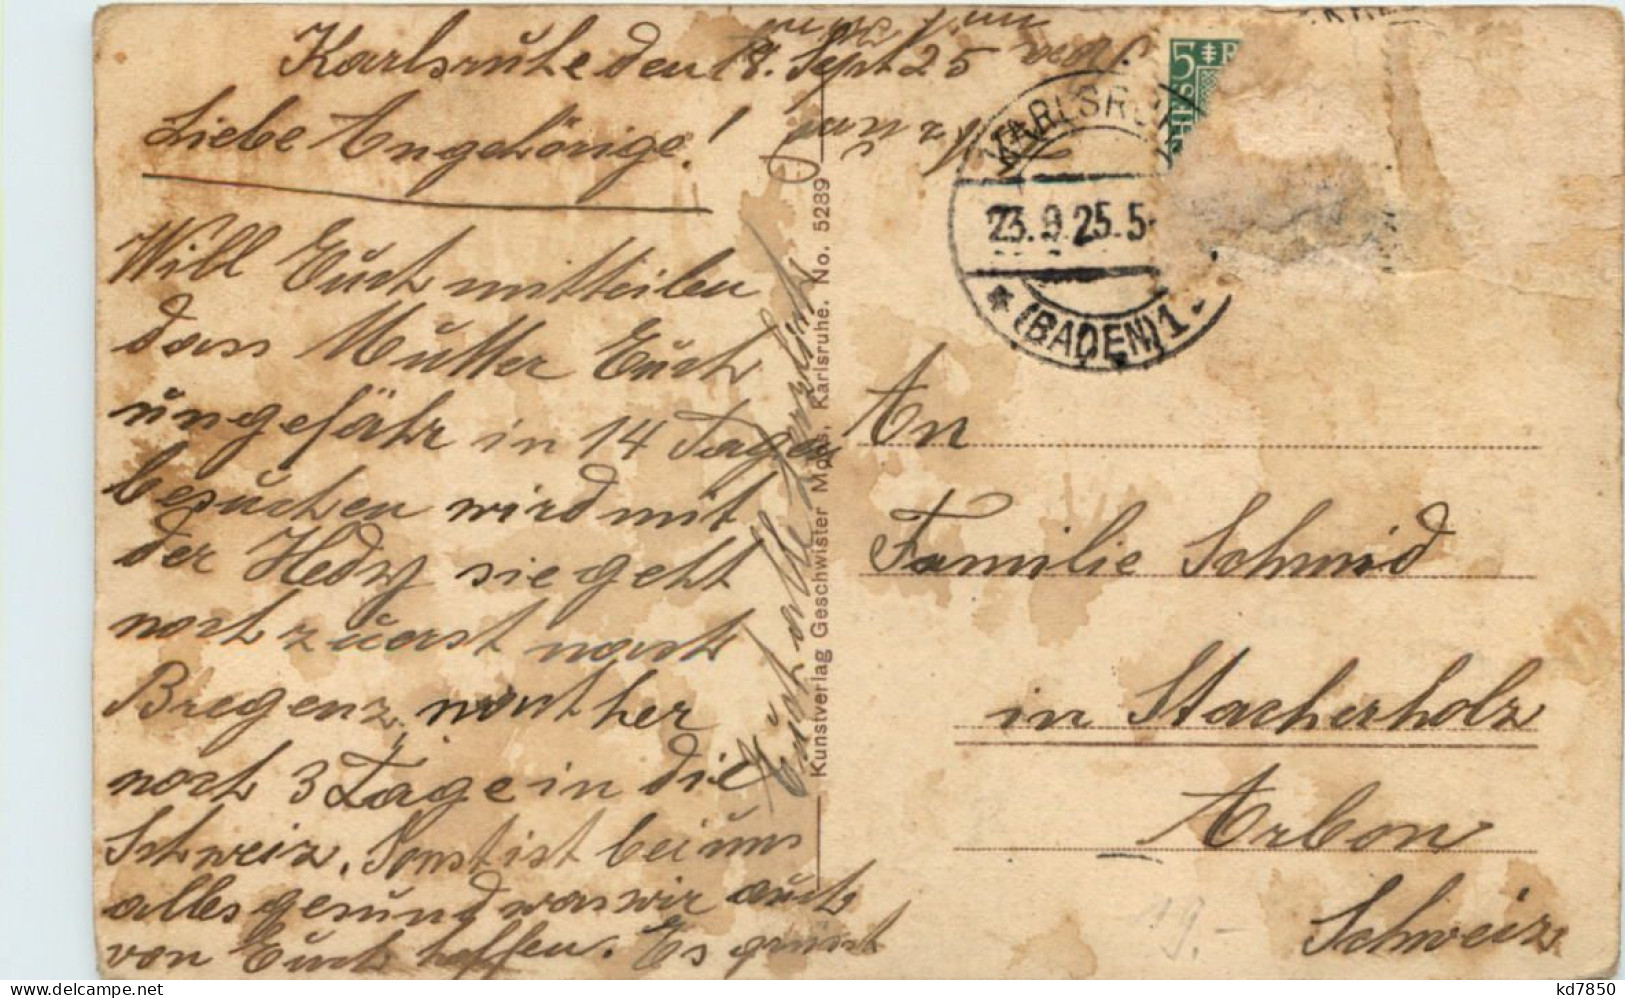 Karlsruhe den 18. Sept 25
Liebe Angehörige!
Will Euch mitteilen
dass Mutter Euch
ungefähr in 14 Tagen
besuchen wird mit
der Hedwg sie geht
noch zuerst nach
Bregenz, nachher
noch 3 Tage in die
Schweiz. Sonst ist bei uns
alles gesund was wir auch
von Euch hoffen. Es grüsst
Euch alle herzlichst
Kunstverlag Geschwister Moos, Karlsruhe. No. 5289
KARLSRU
23.9.25.5-
* (BADEN) 1
5
An
Familie Schmid
in Stacherholz
Arbon
Schweiz
19.-
kd7850